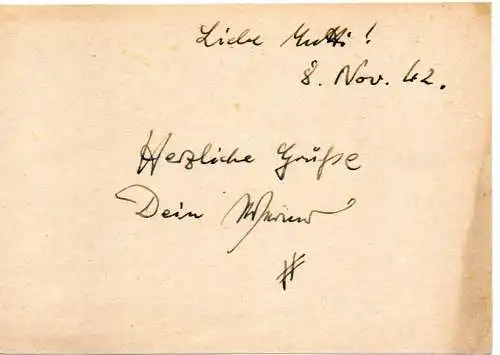 Liebe Mutti!
8. Nov. 42.
Herzliche Grüße
Dein Werner
#